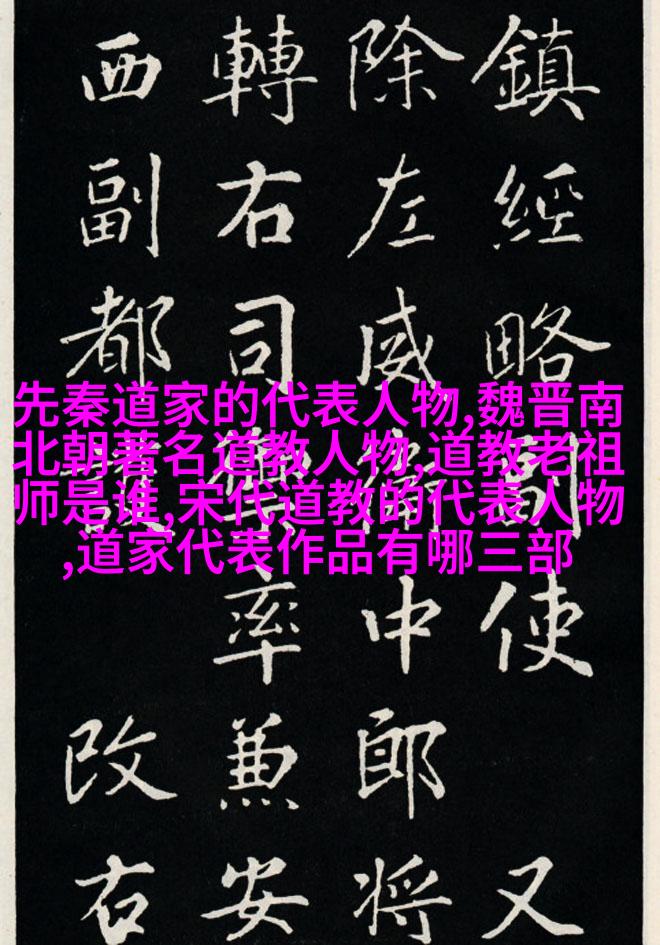 鎮經略副使 又
除左威衛中郎將
轉右司禦率兼安
西副都護 改右
先秦道家的代表人物,魏晋南
北朝著名道教人物,道教老祖
师是谁,宋代道教的代表人物
,道家代表作品有哪三部